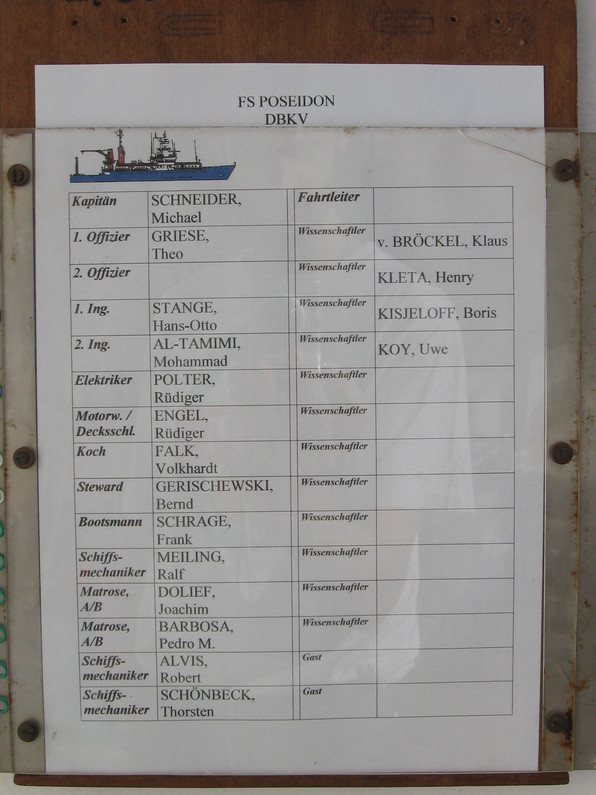 FS POSEIDON
DBKV
Kapitän SCHNEIDER, Fahrtleiter
Michael
1. Offizier GRIESE, Wissenschaftler v. BRÖCKEL, Klaus
Theo
2. Offizier Wissenschaftler KLETA, Henry
1. Ing. STANGE, Wissenschaftler KISJELOFF, Boris
Hans-Otto
2. Ing. AL-TAMIMI, Wissenschaftler KOY, Uwe
Mohammad
Elektriker POLTER, Wissenschaftler
Rüdiger
Motorw. / ENGEL, Wissenschaftler
Decksschl. Rüdiger
Koch FALK, Wissenschaftler
Volkhardt
Steward GERISCHEWSKI, Wissenschaftler
Bernd
Bootsmann SCHRAGE, Wissenschaftler
Frank
Schiffs- MEILING, Wissenschaftler
mechaniker Ralf
Matrose, DOLIEF, Wissenschaftler
A/B Joachim
Matrose, BARBOSA, Wissenschaftler
A/B Pedro M.
Schiffs- ALVIS, Gast
mechaniker Robert
Schiffs- SCHÖNBECK, Gast
mechaniker Thorsten